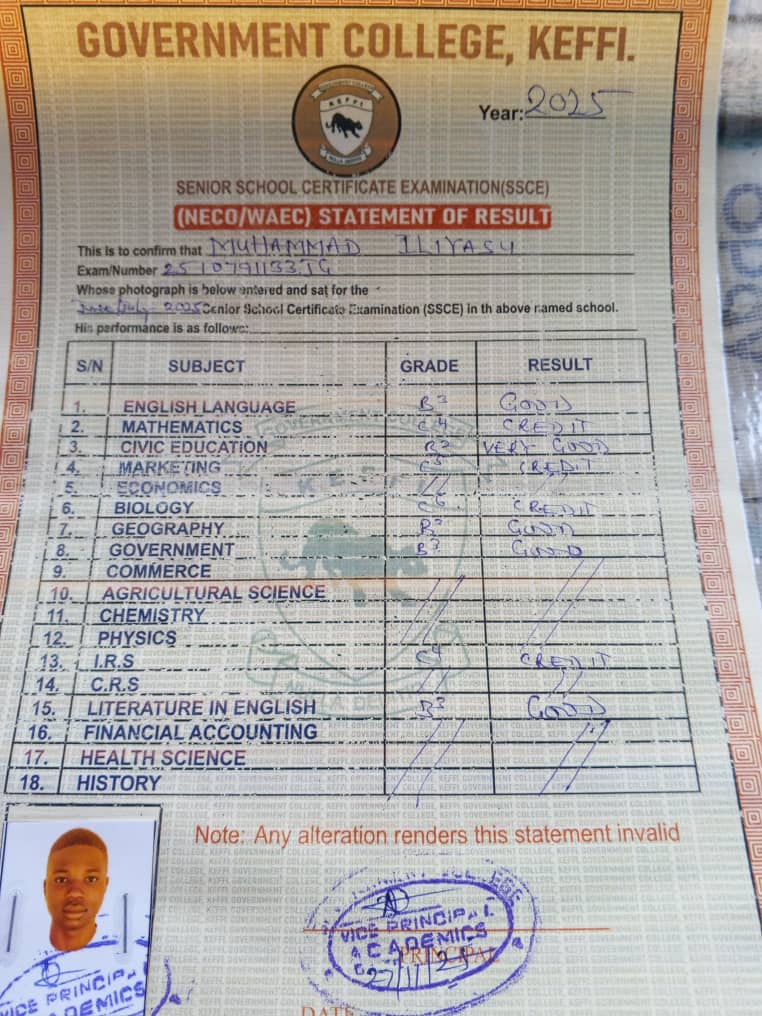 GOVERNMENT COLLEGE, KEFFI.
KEFFI
Year: 2025
SENIOR SCHOOL CERTIFICATE EXAMINATION(SSCE)
(NECO/WAEC) STATEMENT OF RESULT
This is to confirm that MUHAMMAD ILIYASU
Exam/Number
Whose photograph is below entered and sat for the
June/July 2025 Senior School Certificate Examination (SSCE) in th above named school.
His performance is as follows:
S/N SUBJECT GRADE RESULT
1. ENGLISH LANGUAGE B3 GOOD
2. MATHEMATICS C4 CREDIT
3. CIVIC EDUCATION B2 VERY GOOD
4. MARKETING C5 CREDIT
5. ECONOMICS
6. BIOLOGY CREDIT
7. GEOGRAPHY GOOD
8. GOVERNMENT B3 GOOD
9. COMMERCE
10. AGRICULTURAL SCIENCE
11. CHEMISTRY
12. PHYSICS
13. I.R.S C4 CREDIT
14. C.R.S
15. LITERATURE IN ENGLISH B3 GOOD
16. FINANCIAL ACCOUNTING
17. HEALTH SCIENCE
18. HISTORY
Note: Any alteration renders this statement invalid
VICE PRINCIPAL
ACADEMICS
PRINCIPAL
DATE
VICE PRINCIPAL
ACADEMICS